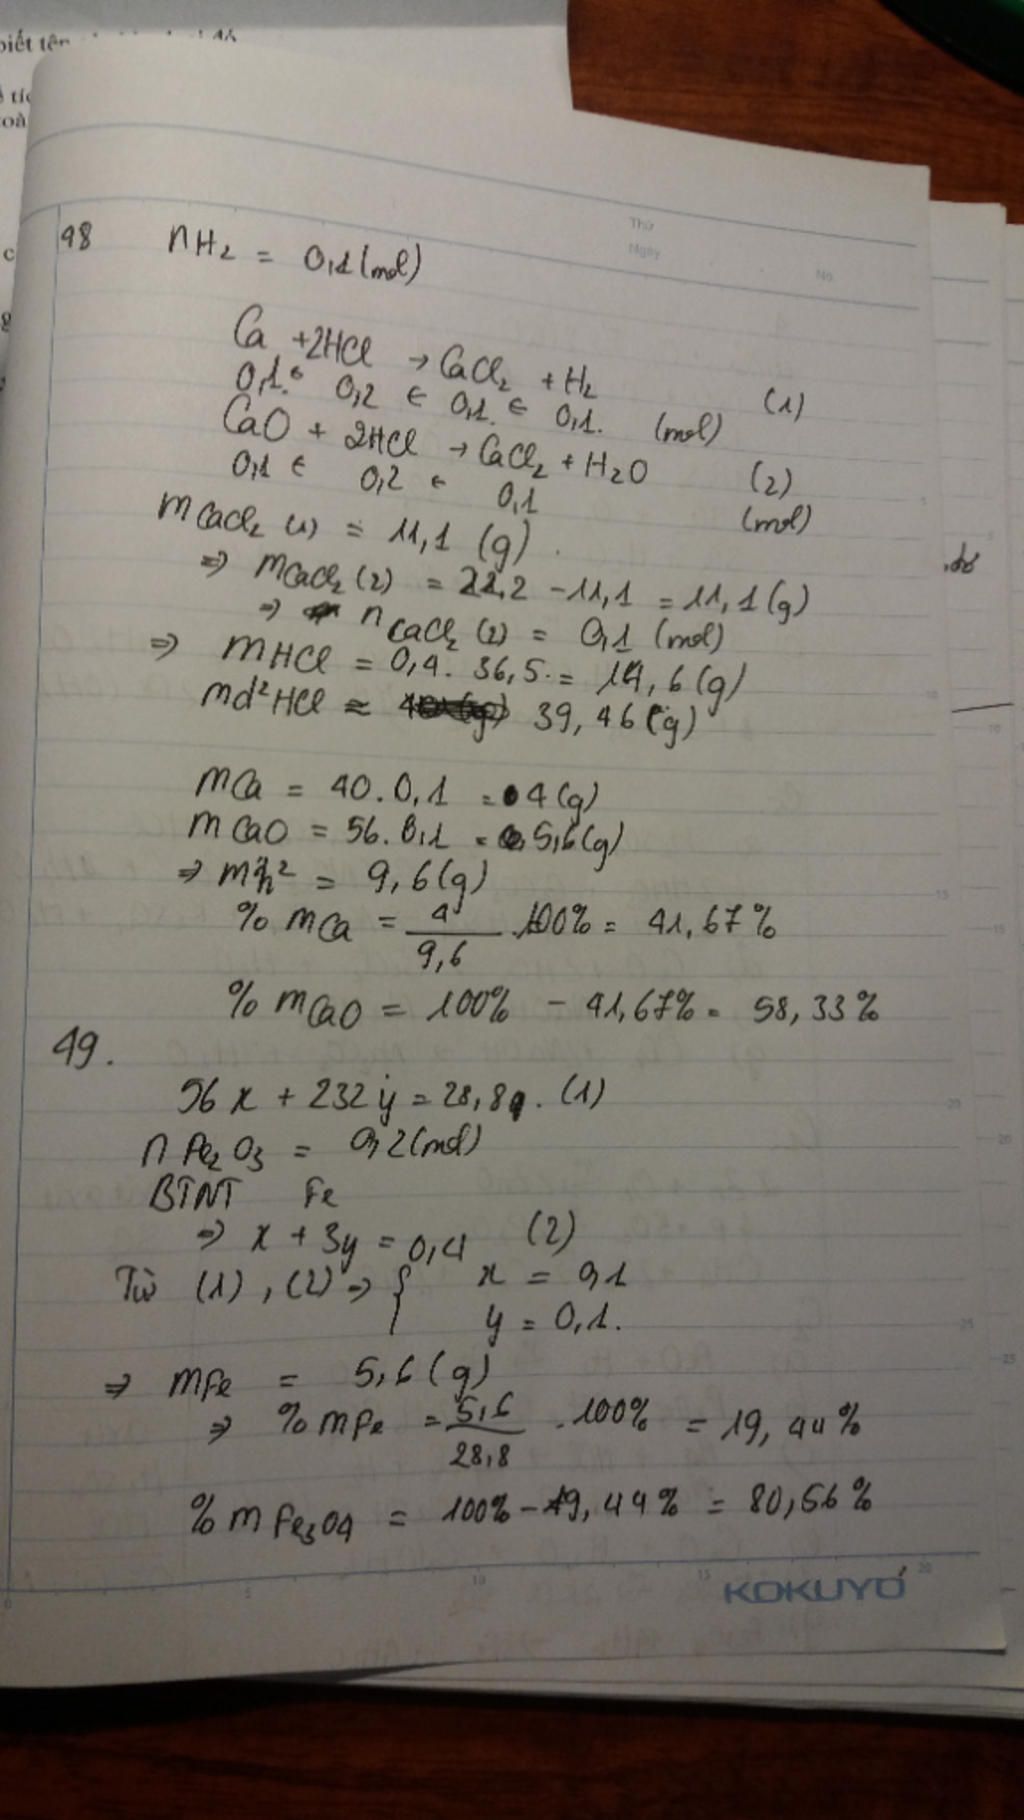 biết tên
Thứ
Ngày
No.
48 nH₂ = 0,1 (mol)
Ca + 2HCl → CaCl₂ + H₂ (1)
0,1 ← 0,2 ← 0,1 ← 0,1. (mol)
CaO + 2HCl → CaCl₂ + H₂O (2)
0,1 ← 0,2 ← 0,1 (mol)
mCaCl₂ (1) = 11,1 (g).
⇒ mCaCl₂ (2) = 22,2 - 11,1 = 11,1 (g)
⇒ nCaCl₂ (2) = 0,1 (mol)
⇒ mHCl = 0,4. 36,5. = 14,6 (g)
md² HCl ≈ 39,46 (g)
mCa = 40. 0,1 = 4 (g)
mCaO = 56. 0,1 = 5,6 (g)
⇒ mh² = 9,6 (g)
% mCa = 4/9,6 . 100% = 41,67%
% mCaO = 100% - 41,67% = 58,33%
49.
56x + 232y = 28,8. (1)
nFe₂O₃ = 0,2 (mol)
BTNT Fe
⇒ x + 3y = 0,4 (2)
Từ (1), (2) ⇒ { x = 0,1
y = 0,1.
⇒ mFe = 5,6 (g)
⇒ % mFe = 5,6/28,8 . 100% = 19,44%
% mFe₃O₄ = 100% - 19,44% = 80,56%
KOKUYO